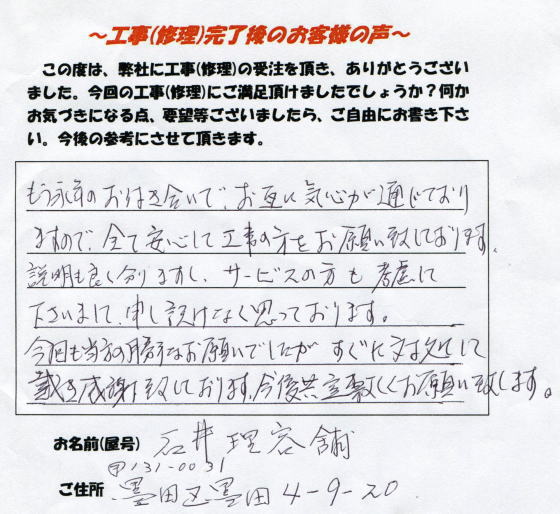 ～工事(修理)完了後のお客様の声～
この度は、弊社に工事(修理)の受注を頂き、ありがとうござい
ました。今回の工事(修理)にご満足頂けましたでしょうか？何か
お気づきになる点、要望等ございましたら、ご自由にお書き下さ
い。今後の参考にさせて頂きます。
もう永年のお付き合いで、お互い気心が通じており
ますので、全て安心して工事の方をお願い致しております。
説明も良く分りますし、サービスの方も考慮に
下さいまして、申し訳けなく思っております。
今回も当方の勝手なお願いでしたが すぐに対処して
戴き感謝致しております。今後共宜敷しくお願い致します。
お名前(屋号) 石井理容舗
〒131-0031
ご住所 墨田区墨田4-9-20